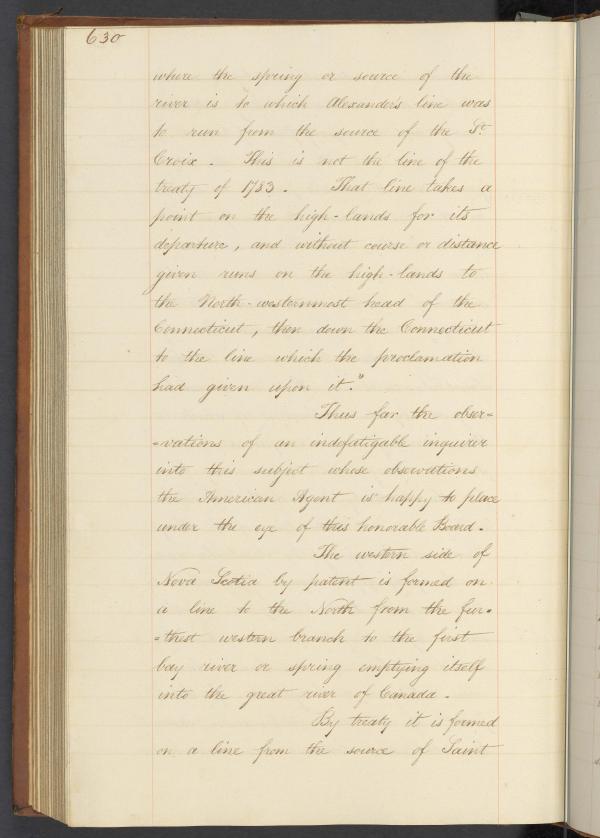 630
where the spring or source of the
river is to which Alexander's line was
to run from the source of the St.
Croix. This is not the line of the
treaty of 1783. That line takes a
point on the high-lands for its
departure, and without course or distance
given runs on the high-lands to
the North-westernmost head of the
Connecticut, then down the Connecticut
to the line which the proclamation
had given upon it."
Thus far the obser=
=vations of an indefatigable inquirer
into this subject whose observations
the American Agent is happy to place
under the eye of this honorable Board.
The western side of
Nova Scotia by patent is formed on
a line to the North from the fur=
=thest western branch to the first
bay river or spring emptying itself
into the great river of Canada.
By treaty it is formed
on a line from the source of Saint